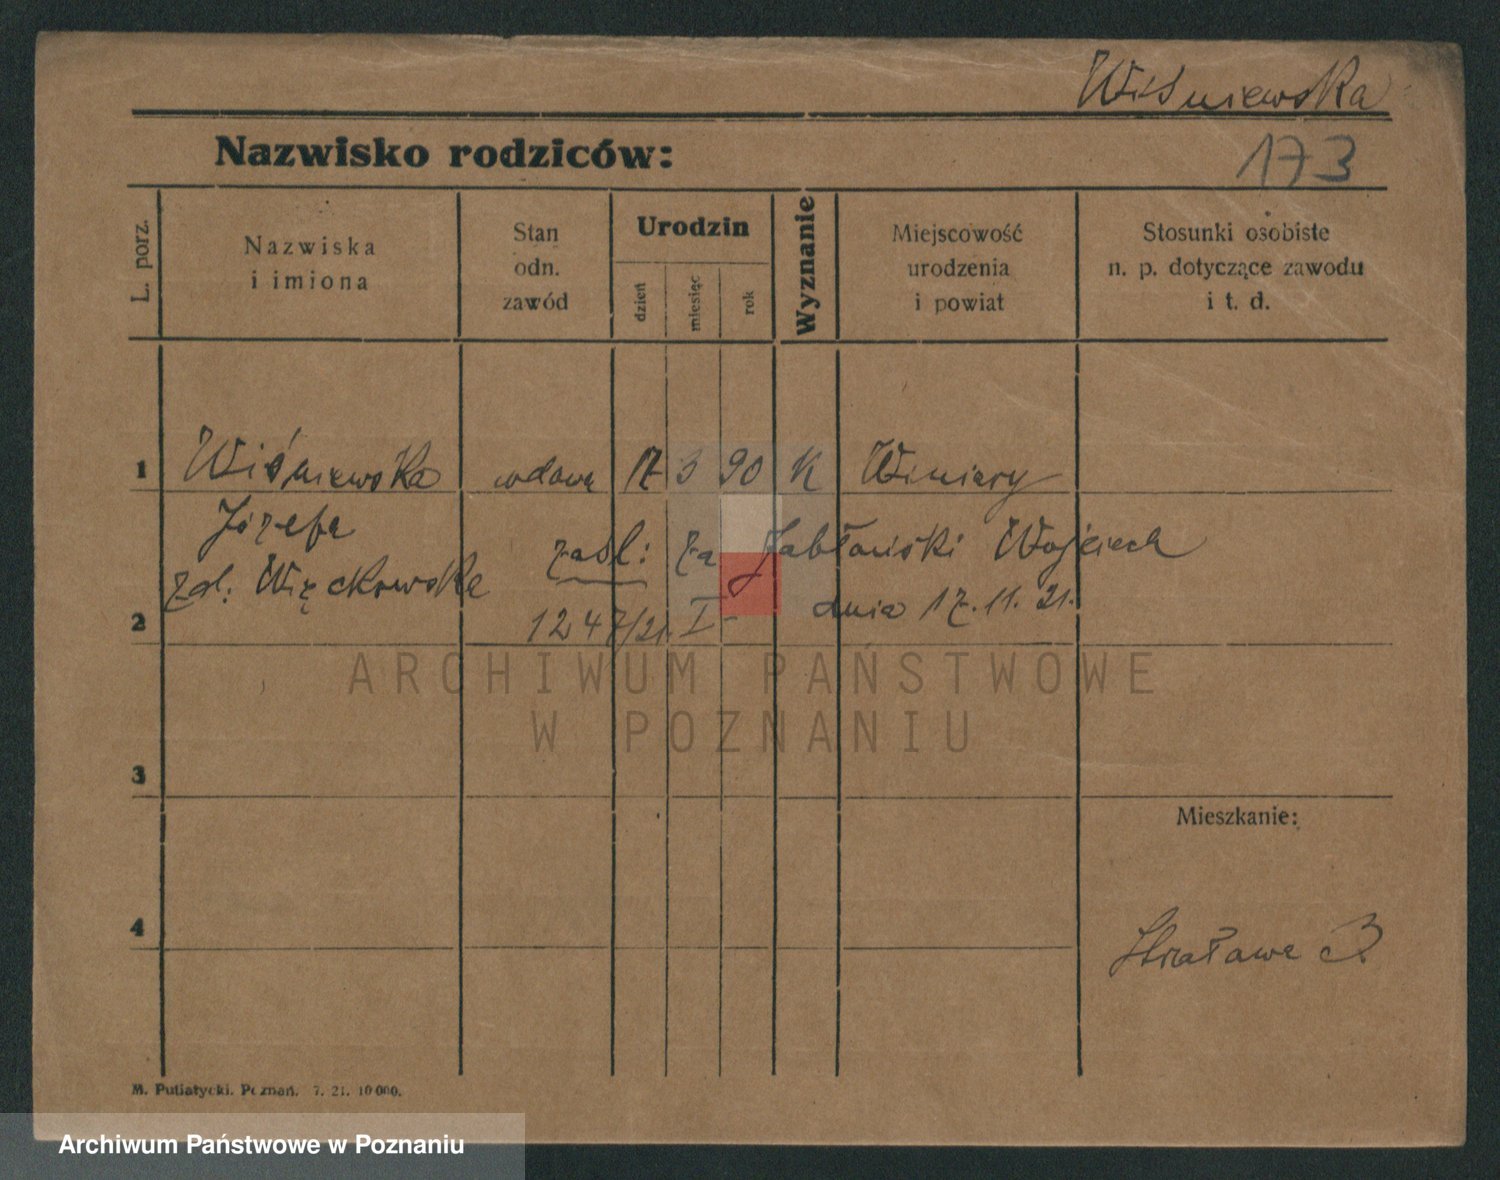 Wiśniewska
Nazwisko rodziców:
173
L. porz.
Nazwiska
i imiona
Stan
odn.
zawód
Urodzin
dzień
miesięc
rok
Wyznanie
Miejscowość
urodzenia
i powiat
Stosunki osobiste
n. p. dotyczące zawodu
i t. d.
1 Wiśniewska wdowa 17 3 90 K Winiary
Józefa
zaśl: za Jabłoński Wojciech
zd: Więckowska
dnia 17. 11. 21.
2 1247/21. I-
ARCHIWUM PAŃSTWOWE
W POZNANIU
3
Mieszkanie:
4
3.
M. Putiatycki. Poznań. 7. 21. 10 000.
Archiwum Państwowe w Poznaniu